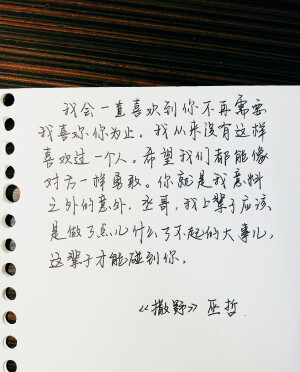 我会一直喜欢到你不再需要
我喜欢你为止。我从来没有这样
喜欢过一个人。希望我们都能像
对方一样勇敢。你就是我意料
之外的意外。丞哥，我上辈子应该
是做了点儿什么了不起的大事儿，
这辈子才能碰到你。
《撒野》巫哲